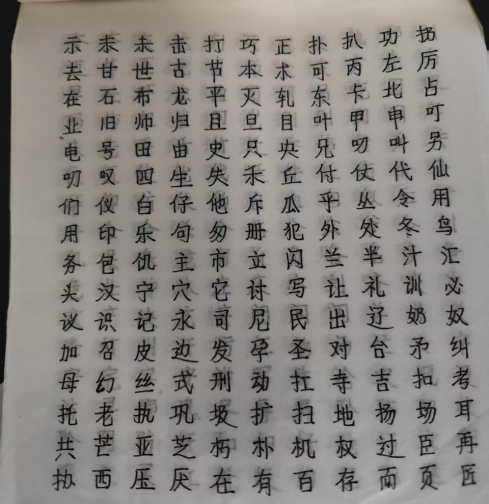 示 未 末 击 打 巧 正 扑 扒 功 扔
去 甘 世 古 节 本 术 可 丙 左 厉
在 石 布 龙 平 灭 轧 东 卡 北 占
业 旧 帅 归 且 旦 目 叶 甲 申 叮
电 号 田 由 史 只 央 兄 叨 叫 另
叨 叹 四 生 失 禾 丘 付 仗 代 仙
们 仪 白 仔 他 斥 瓜 乎 丛 令 用
用 印 乐 句 匆 册 犯 外 处 冬 鸟
务 包 饥 主 市 立 闪 兰 半 汁 汇
头 汉 宁 穴 它 讨 写 让 礼 训 必
议 识 记 永 司 尼 民 出 辽 奶 奴
加 召 皮 边 发 孕 圣 对 台 矛 纠
母 幻 丝 式 刑 动 扛 寺 吉 扣 考
托 老 执 巩 圾 扩 扫 地 扬 场 耳
共 芒 亚 芝 朽 朴 机 权 过 臣 再
协 西 压 厌 在 有 百 存 而 页 匠